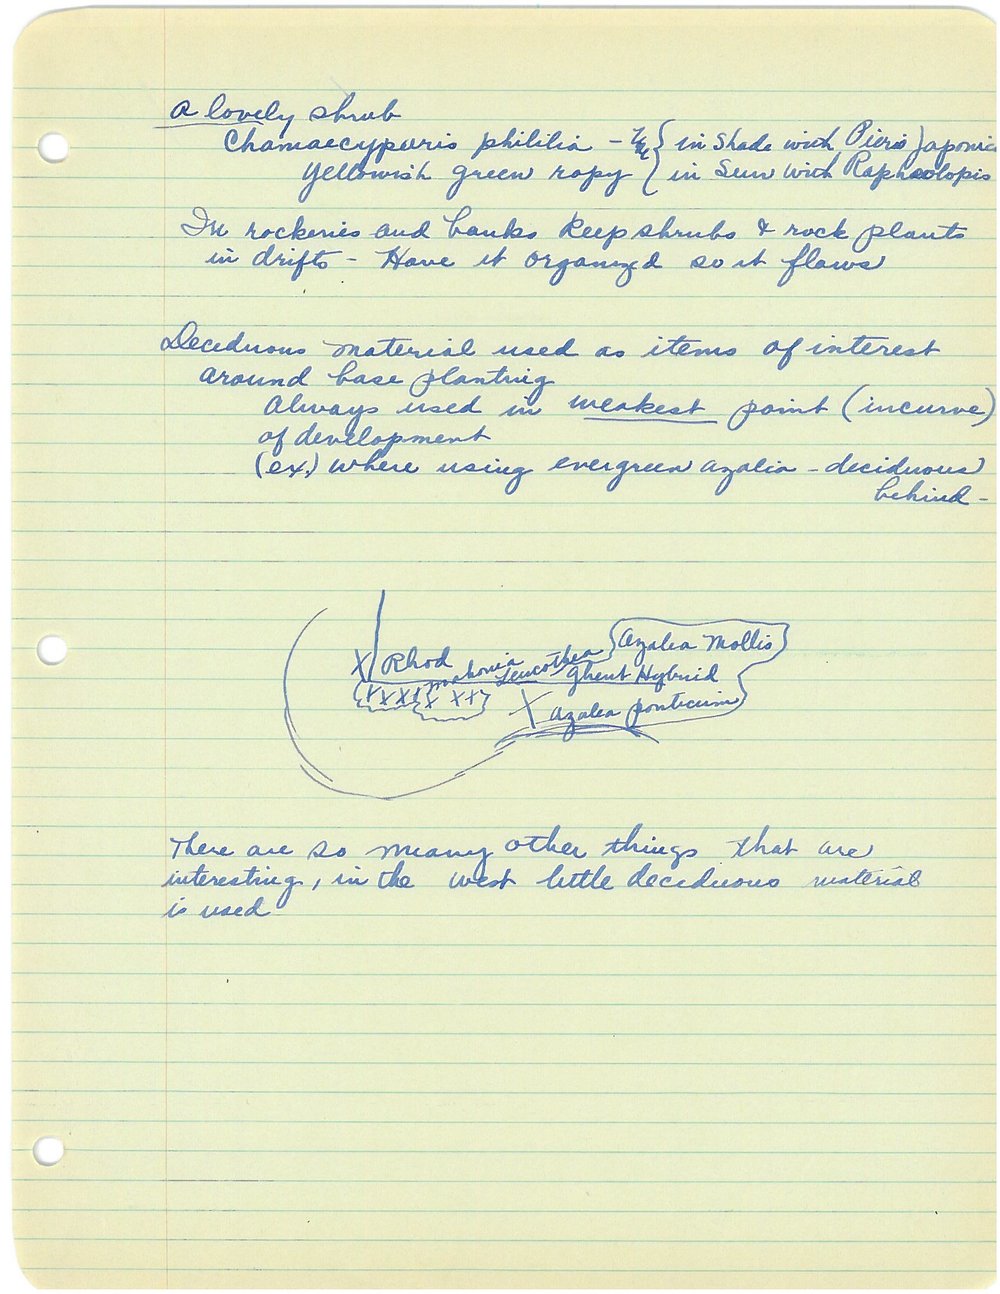 A lovely shrub
Chamaecyparis phililia - Use { in Shade with Pieris Japonica
Yellowish green ropy { in Sun with Raphaolopis
In rockeries and banks keep shrubs & rock plants
in drifts - Have it organized so it flows
Deciduous material used as items of interest
around base planting
Always used in weakest point (incurve)
of development
(ex.) Where using evergreen azalia - deciduous
behind -
Azalea Mollis
X Rhod Mahonia Leucothea Ghent Hybrid
X X X X X X X
X Azalea ponticum
There are so many other things that are
interesting, in the west little deciduous material
is used